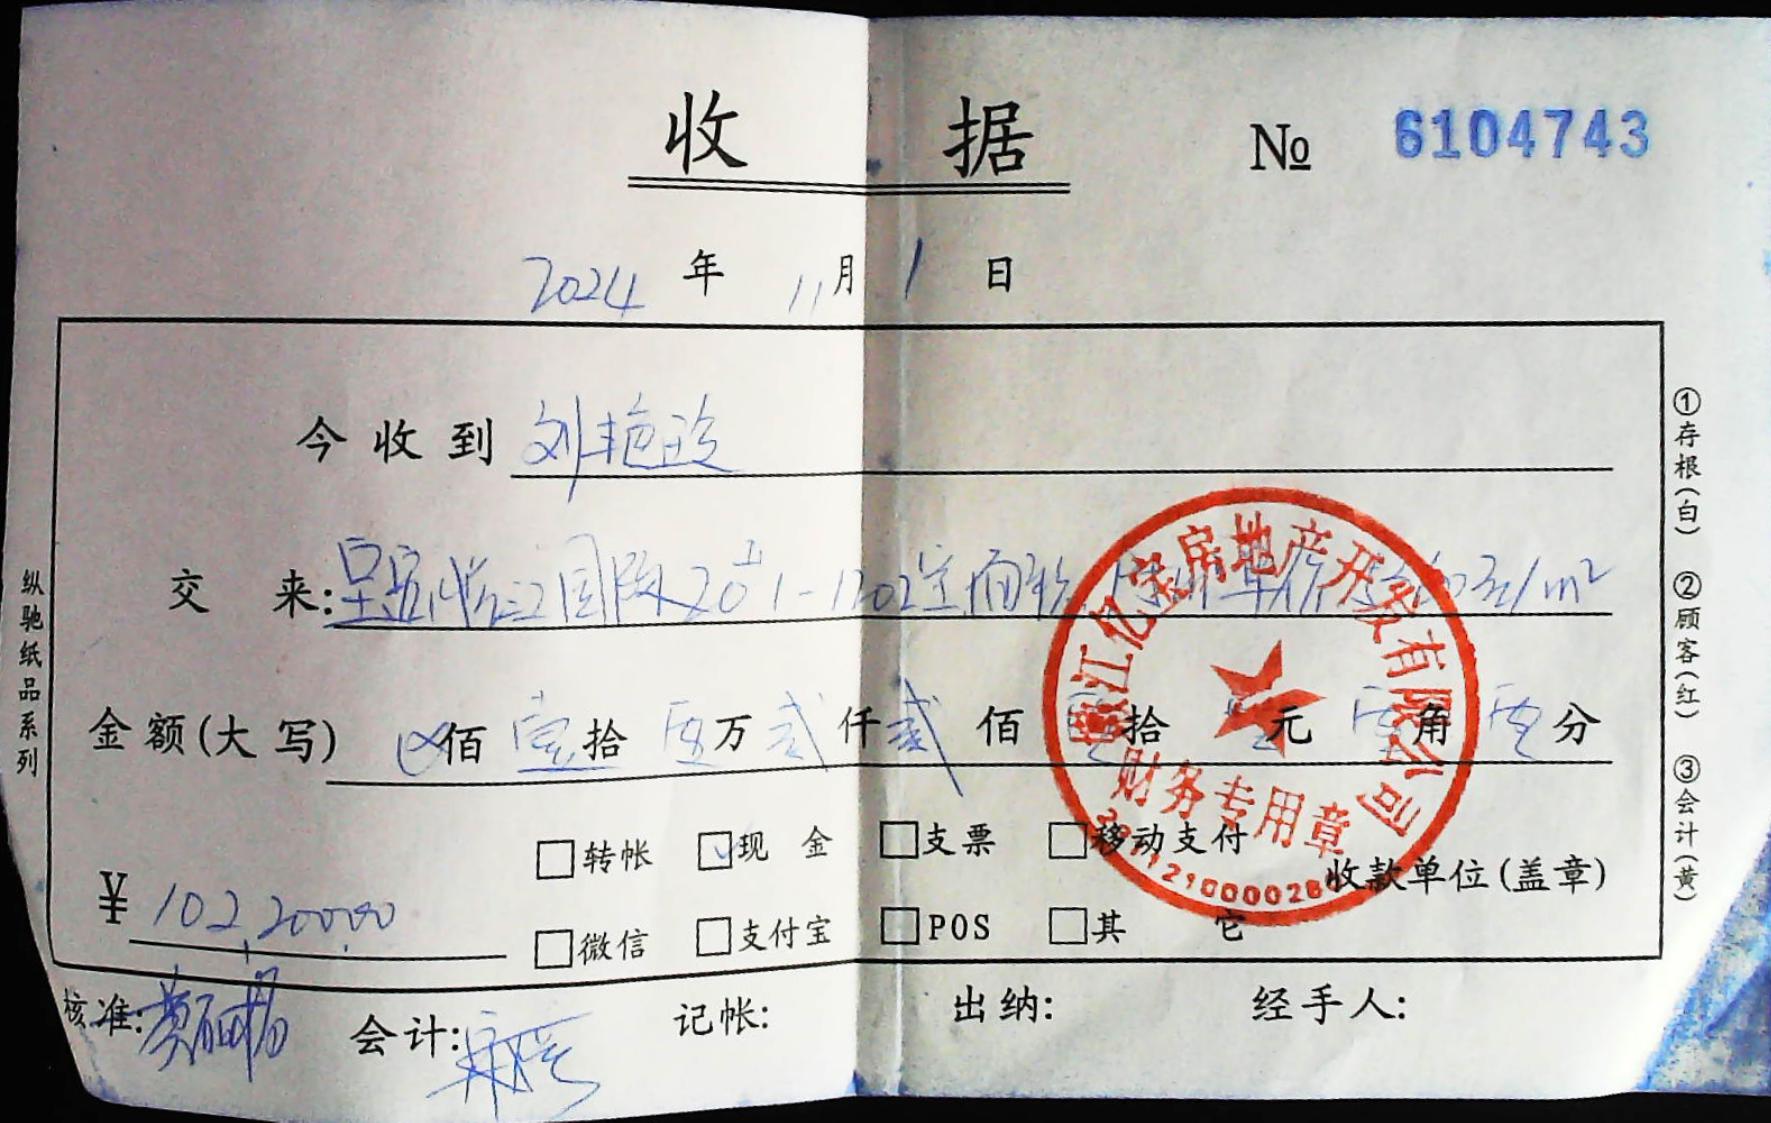 收 据 № 6104743
2024 年 11 月 1 日
今收到 刘艳玲
交 来: 国际20#1-1202 面积 单价 元/m²
金额(大写) 佰 壹拾 零万 贰仟贰佰 零拾 零元 零角 零分
¥ 102,200.00
□转帐 □现 金 □支票 □移动支付
收款单位(盖章)
□微信 □支付宝 □POS □其 它
核准: 会计: 记帐: 出纳: 经手人:
纵驰纸品系列
①存根(白) ②顾客(红) ③会计(黄)
江亿宝房地产开发有限公司
财务专用章